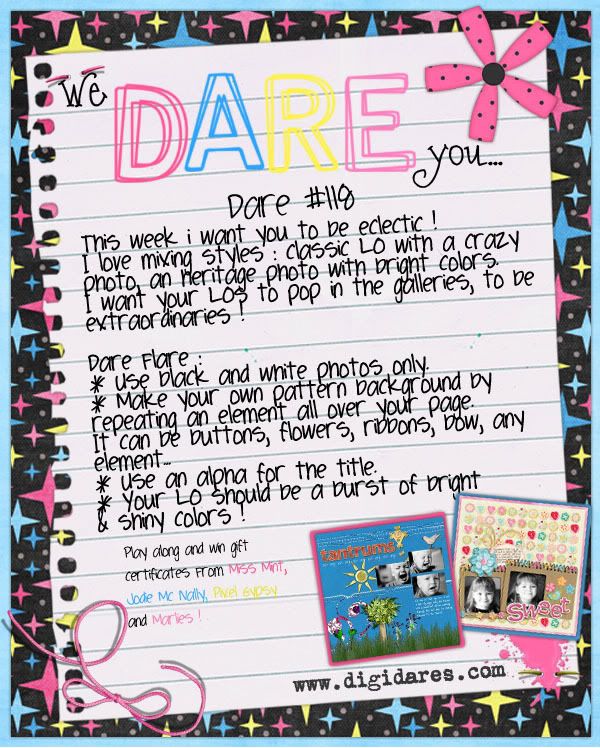 We
DARE
you...
Dare #118
This week i want you to be eclectic !
I love mixing styles : classic LO with a crazy
photo, an heritage photo with bright colors.
I want your LOs to pop in the galleries, to be
extraordinaries !
Dare Flare :
* Use black and white photos only.
* Make your own pattern background by
repeating an element all over your page.
It can be buttons, flowers, ribbons, bow, any
element...
* Use an alpha for the title.
* Your LO should be a burst of bright
& shiny colors !
Play along and win gift
certificates From Miss Mint,
Jodie Mc Nally, Pixel Gypsy
and Marlies !
tantrums
Sweet
www.digidares.com